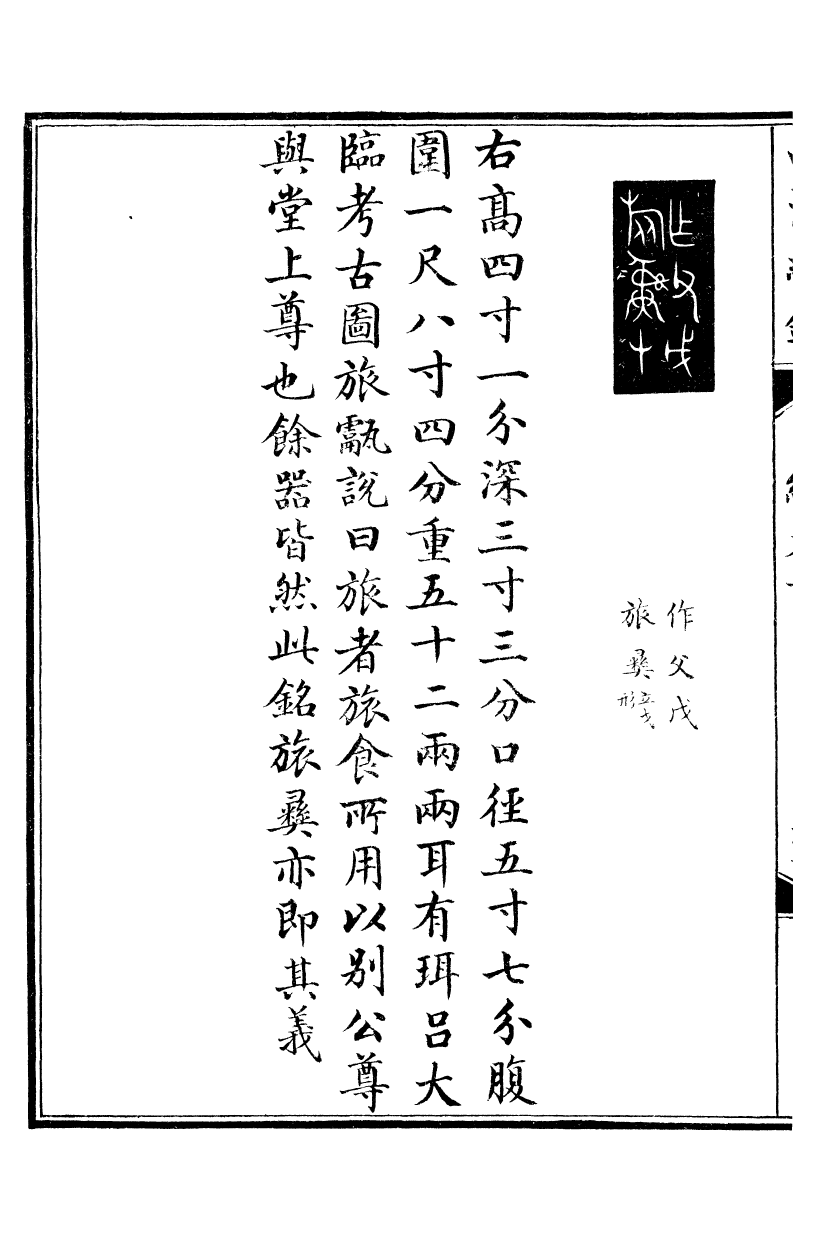 作父戊
旅彝立戈形
右高四寸一分深三寸三分口徑五寸七分腹
圍一尺八寸四分重五十二兩兩耳有珥吕大
臨考古圖旅甗說曰旅者旅食所用以别公尊
與堂上尊也餘器皆然此銘旅彝亦即其義